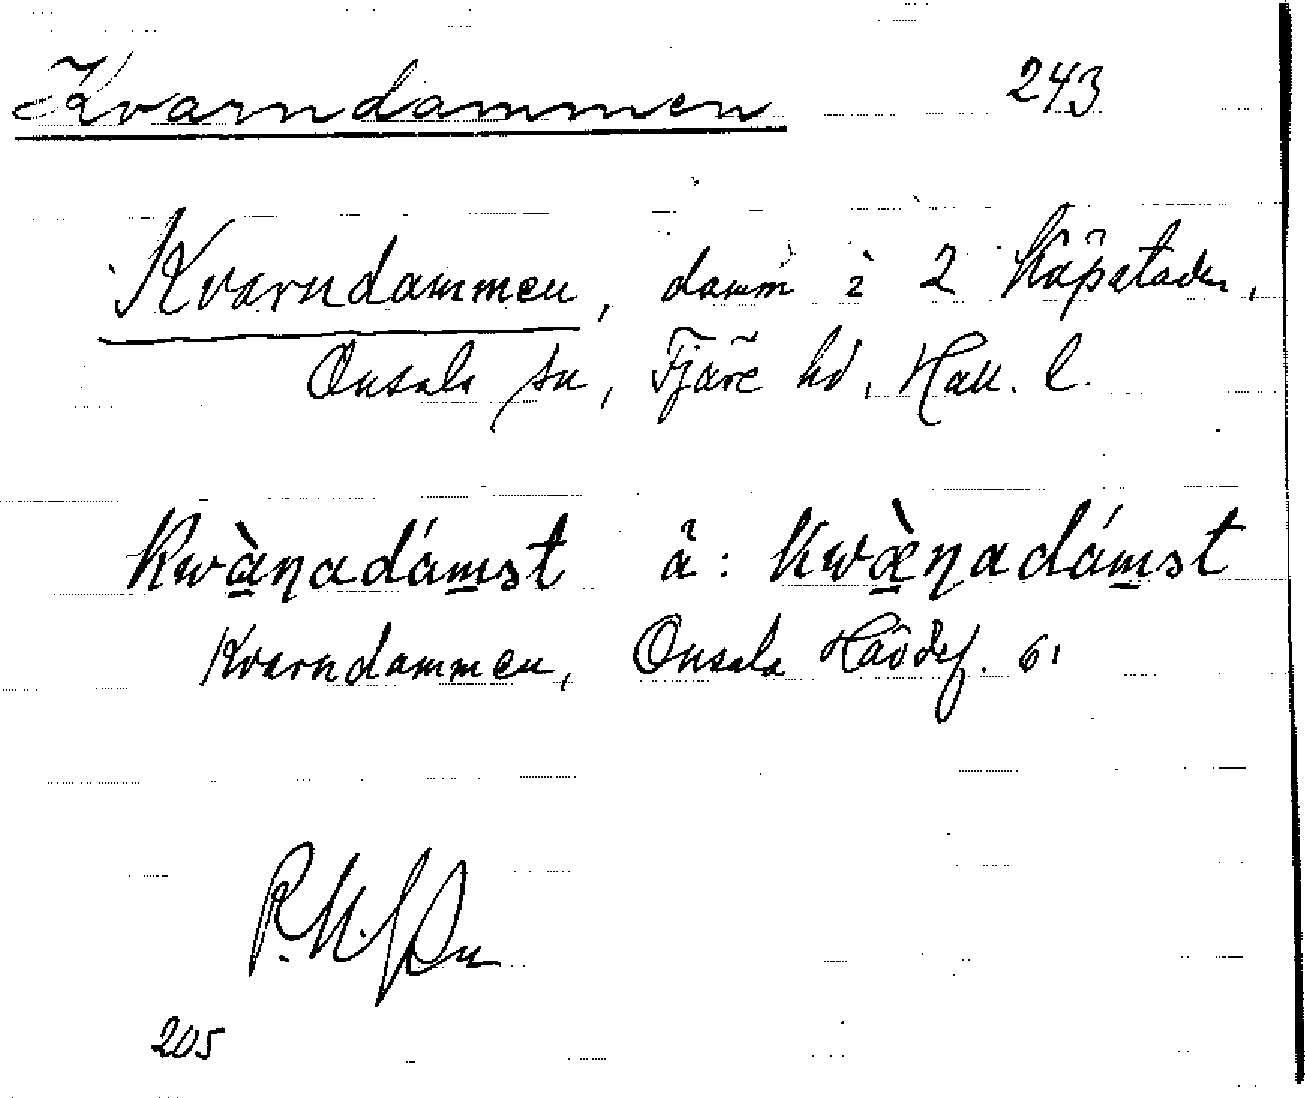 Kvarndammen 243
Kvarndammen, damm i 2 Kåpstaden,
Onsala sn, Fjäre hd, Hall. l.
kwànadámst å: kwæ̀nadámst
Kvarndammen, Onsala Hävdsf. 61
205